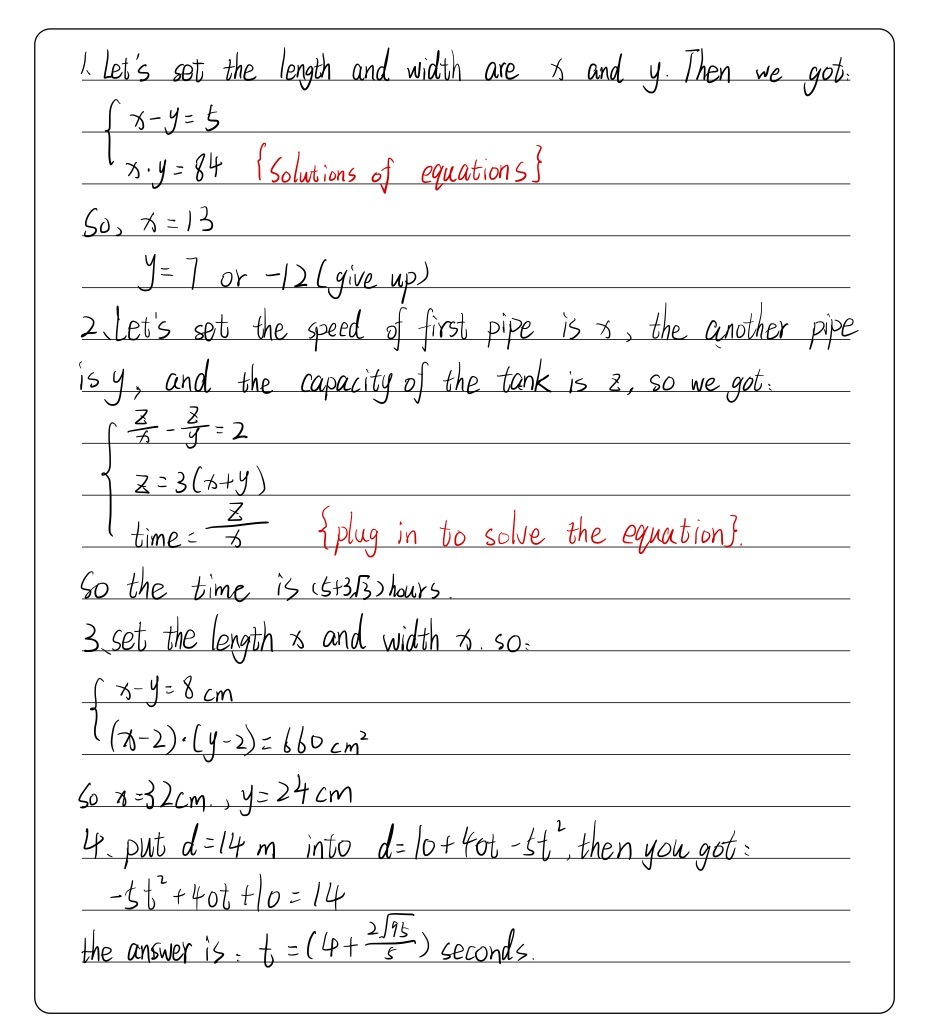 1、Let's set the length and width are x and y. Then we got:
{ x-y=5
x·y=84 {Solutions of equations}
So, x=13
y=7 or -12(give up)
2、Let's set the speed of first pipe is x, the another pipe
is y, and the capacity of the tank is z, so we got:
{ z/x - z/y = 2
z=3(x+y)
time= z/x {plug in to solve the equation}.
So the time is (5+3√3)hours.
3、set the length x and width x. so:
{ x-y=8 cm
(x-2)·(y-2)=660 cm²
So x=32cm., y=24cm
4、put d=14 m into d=10+40t-5t², then you got:
-5t²+40t+10=14
the answer is: t=(4+ 2√95/5) seconds.